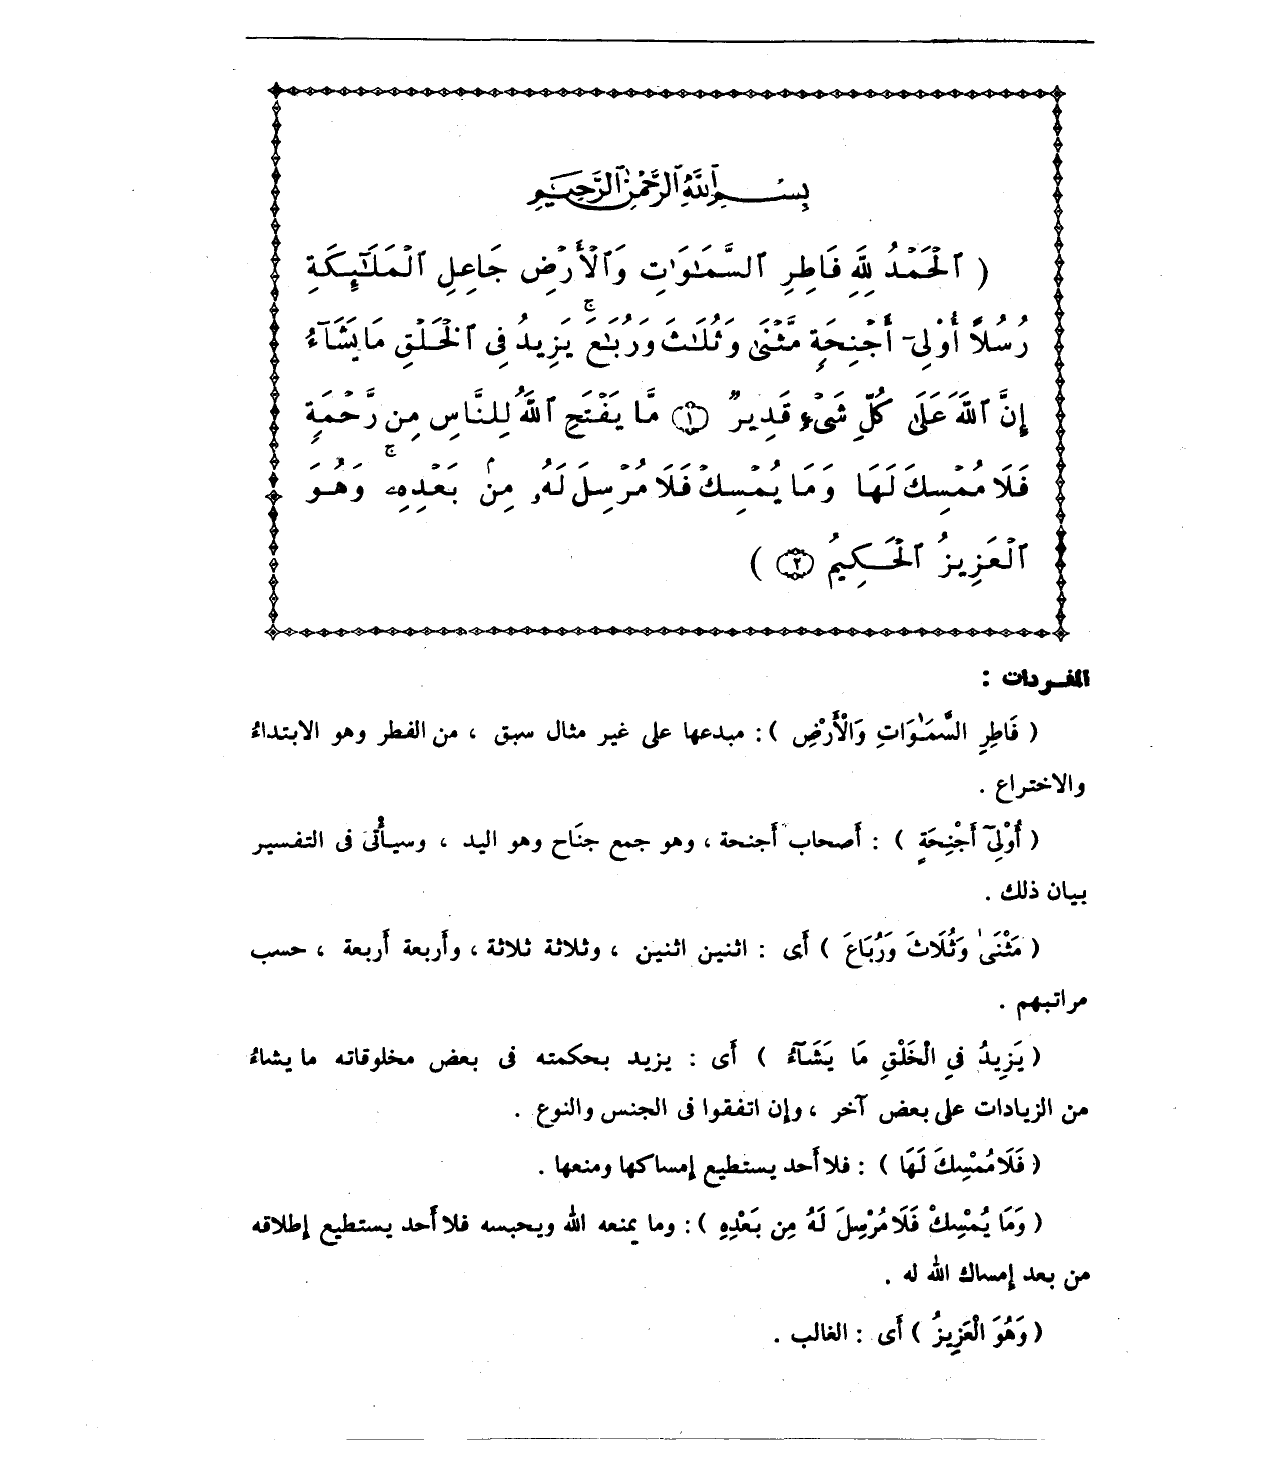 بِسْمِ ٱللَّهِ ٱلرَّحْمَٰنِ ٱلرَّحِيمِ
( ٱلْحَمْدُ لِلَّهِ فَاطِرِ ٱلسَّمَٰوَٰتِ وَٱلْأَرْضِ جَاعِلِ ٱلْمَلَٰٓئِكَةِ
رُسُلًا أُوْلِىٓ أَجْنِحَةٍ مَّثْنَىٰ وَثُلَٰثَ وَرُبَٰعَ ۚ يَزِيدُ فِى ٱلْخَلْقِ مَا يَشَآءُ
إِنَّ ٱللَّهَ عَلَىٰ كُلِّ شَىْءٍ قَدِيرٌ ۝١ مَّا يَفْتَحِ ٱللَّهُ لِلنَّاسِ مِن رَّحْمَةٍ
فَلَا مُمْسِكَ لَهَا وَمَا يُمْسِكْ فَلَا مُرْسِلَ لَهُۥ مِنۢ بَعْدِهِۦ ۚ وَهُوَ
ٱلْعَزِيزُ ٱلْحَكِيمُ ۝٢ )
المفردات :
( فَاطِرِ السَّمَٰوَاتِ وَالْأَرْضِ ) : مبدعها على غير مثال سبق ، من الفطر وهو الابتداءُ
والاختراع .
( أُوْلِىٓ أَجْنِحَةٍ ) : أَصحاب أَجنحة ، وهو جمع جنَاح وهو اليد ، وسيأْتى فى التفسير
بيان ذلك .
( مَثْنَىٰ وَثُلَاثَ وَرُبَاعَ ) أَى : اثنين اثنين ، وثلاثة ثلاثة ، وأَربعة أَربعة ، حسب
مراتبهم .
( يَزِيدُ فِي الْخَلْقِ مَا يَشَآءُ ) أَى : يزيد بحكمته فى بعض مخلوقاته ما يشاءُ
من الزيادات على بعض آخر ، وإن اتفقوا فى الجنس والنوع .
( فَلَا مُمْسِكَ لَهَا ) : فلا أَحد يستطيع إمساكها ومنعها .
( وَمَا يُمْسِكْ فَلَا مُرْسِلَ لَهُ مِن بَعْدِهِ ) : وما يمنعه الله ويحبسه فلا أَحد يستطيع إطلاقه
من بعد إمساك الله له .
( وَهُوَ الْعَزِيزُ ) أَى : الغالب .